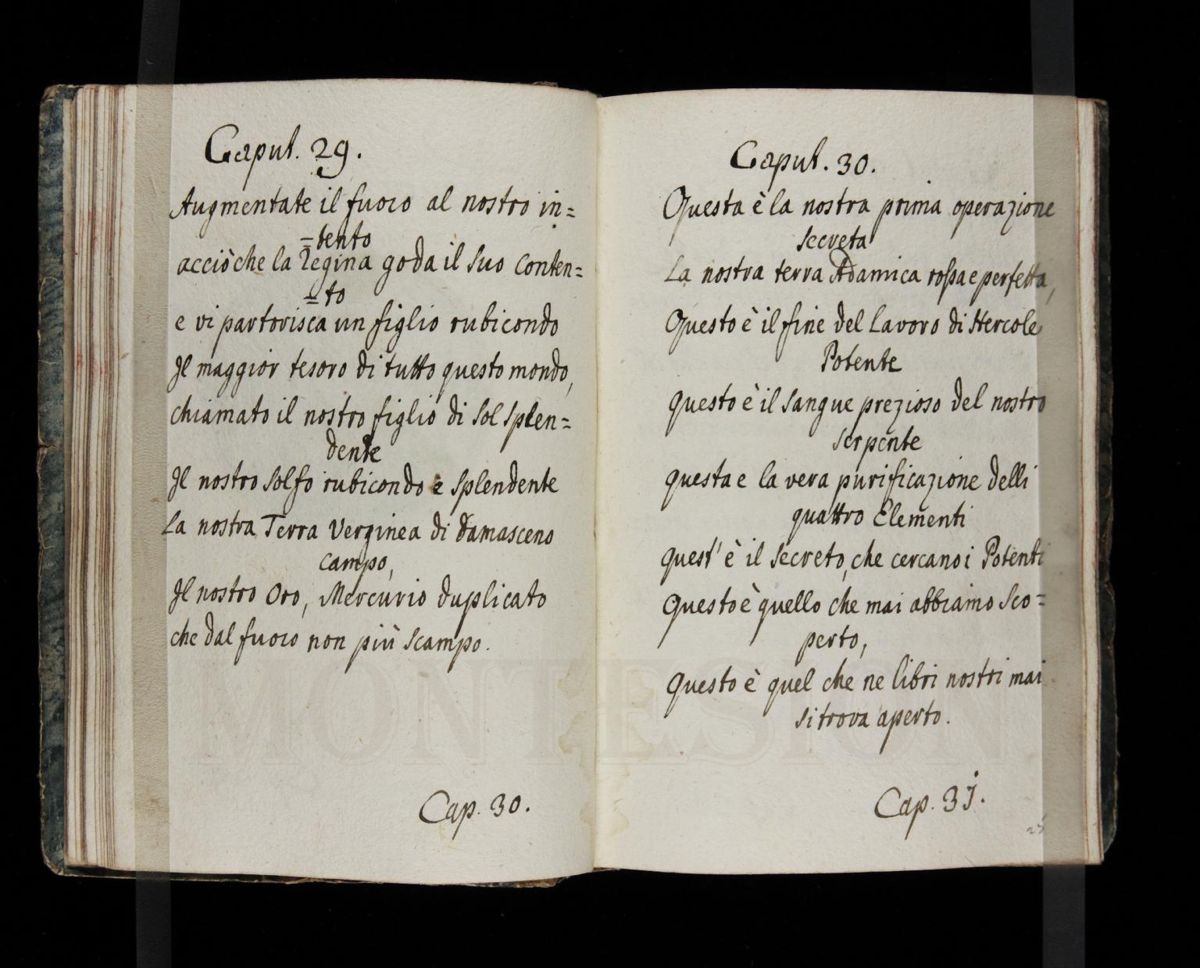 Caput. 29.
Augmentate il fuoco al nostro in=
=tento
acciòche la Regina goda il suo conten=
=to
e vi partorisca un figlio rubicondo
Il maggior tesoro di tutto questo mondo,
chiamato il nostro figlio di Sol splen=
dente
Il nostro Solfo rubicondo e splendente
La nostra Terra Verginea di damasceno
campo,
Il nostro Oro, Mercurio duplicato
che dal fuoco non più scampo.
Cap. 30.
Caput. 30.
Questa è la nostra prima operazione
secreta
La nostra terra Adamica rossa e perfetta,
Questo è il fine del Lavoro di Hercole
Potente
questo è il sangue prezioso del nostro
serpente
questa e la vera purificazione delli
quattro Elementi
quest' è il secreto, che cercano i Potenti
Questo è quello che mai abbiamo sco=
perto,
Questo è quel che ne libri nostri mai
si trova aperto.
Cap. 31.
MONTESION